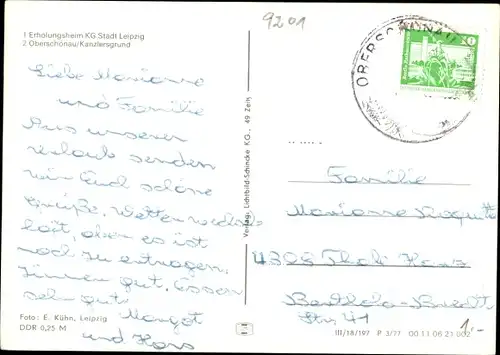 1 Erholungsheim KG Stadt Leipzig
2 Oberschönau/Kanzlersgrund
9201
OBERSCHÖNAU
Liebe Marianne
und Familie
Aus unserem
Urlaub senden
wir Euch schöne
Grüße. Wetter
läßt, aber es ist
noch zu ertragen.
Zimmer gut. Essen
sehr gut.
Margot
und Hans
Foto: E. Kühn, Leipzig
DDR 0,25 M
Verlag Lichtbild-Schincke KG., 49 Zeitz
Familie
Marianne
4308 Thale Harz
Berthold-Brecht
Str. 41
III/18/197 P 3/77 00 11 06 21 002
1,-